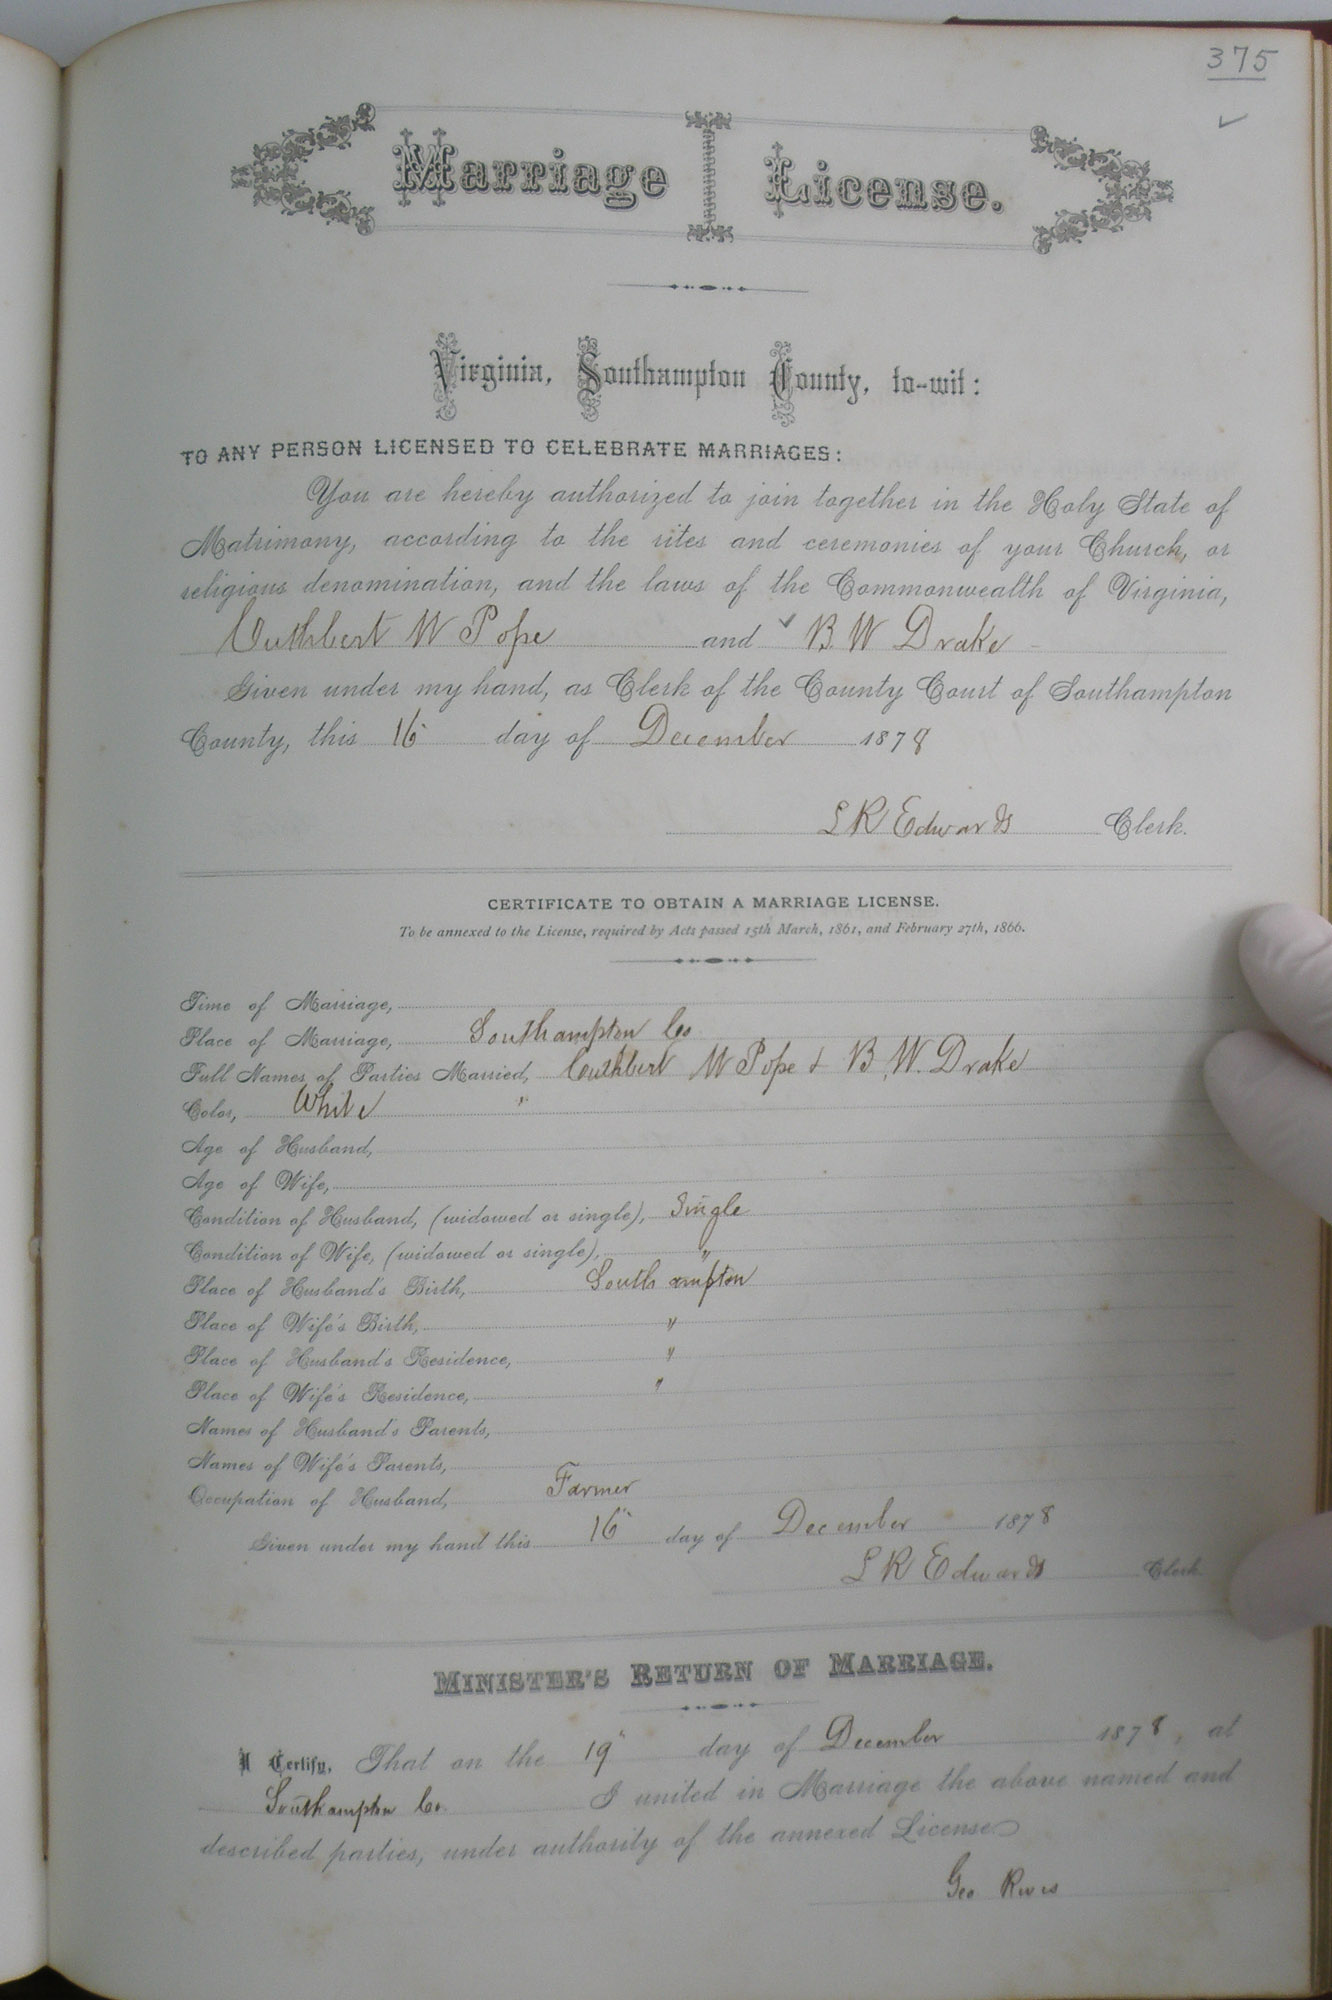 375
Marriage License.
Virginia, Southampton County, to-wit:
TO ANY PERSON LICENSED TO CELEBRATE MARRIAGES:
You are hereby authorized to join together in the Holy State of
Matrimony, according to the rites and ceremonies of your Church, or
religious denomination, and the laws of the Commonwealth of Virginia,
Cuthbert W Pope and B. W Drake
Given under my hand, as Clerk of the County Court of Southampton
County, this 16 day of December 1878
L R Edwards Clerk.
CERTIFICATE TO OBTAIN A MARRIAGE LICENSE.
To be annexed to the License, required by Acts passed 15th March, 1861, and February 27th, 1866.
Time of Marriage,
Place of Marriage, Southampton Co
Full Names of Parties Married, Cuthbert W Pope & B. W. Drake
Color, White "
Age of Husband,
Age of Wife,
Condition of Husband, (widowed or single), Single
Condition of Wife, (widowed or single), "
Place of Husband's Birth, Southampton
Place of Wife's Birth, "
Place of Husband's Residence, "
Place of Wife's Residence, "
Names of Husband's Parents,
Names of Wife's Parents,
Occupation of Husband, Farmer
Given under my hand this 16 day of December 1878
L R Edwards Clerk
MINISTER'S RETURN OF MARRIAGE.
I Certify, That on the 19" day of December 1878, at
Southampton Co. I united in Marriage the above named and
described parties, under authority of the annexed License
Geo